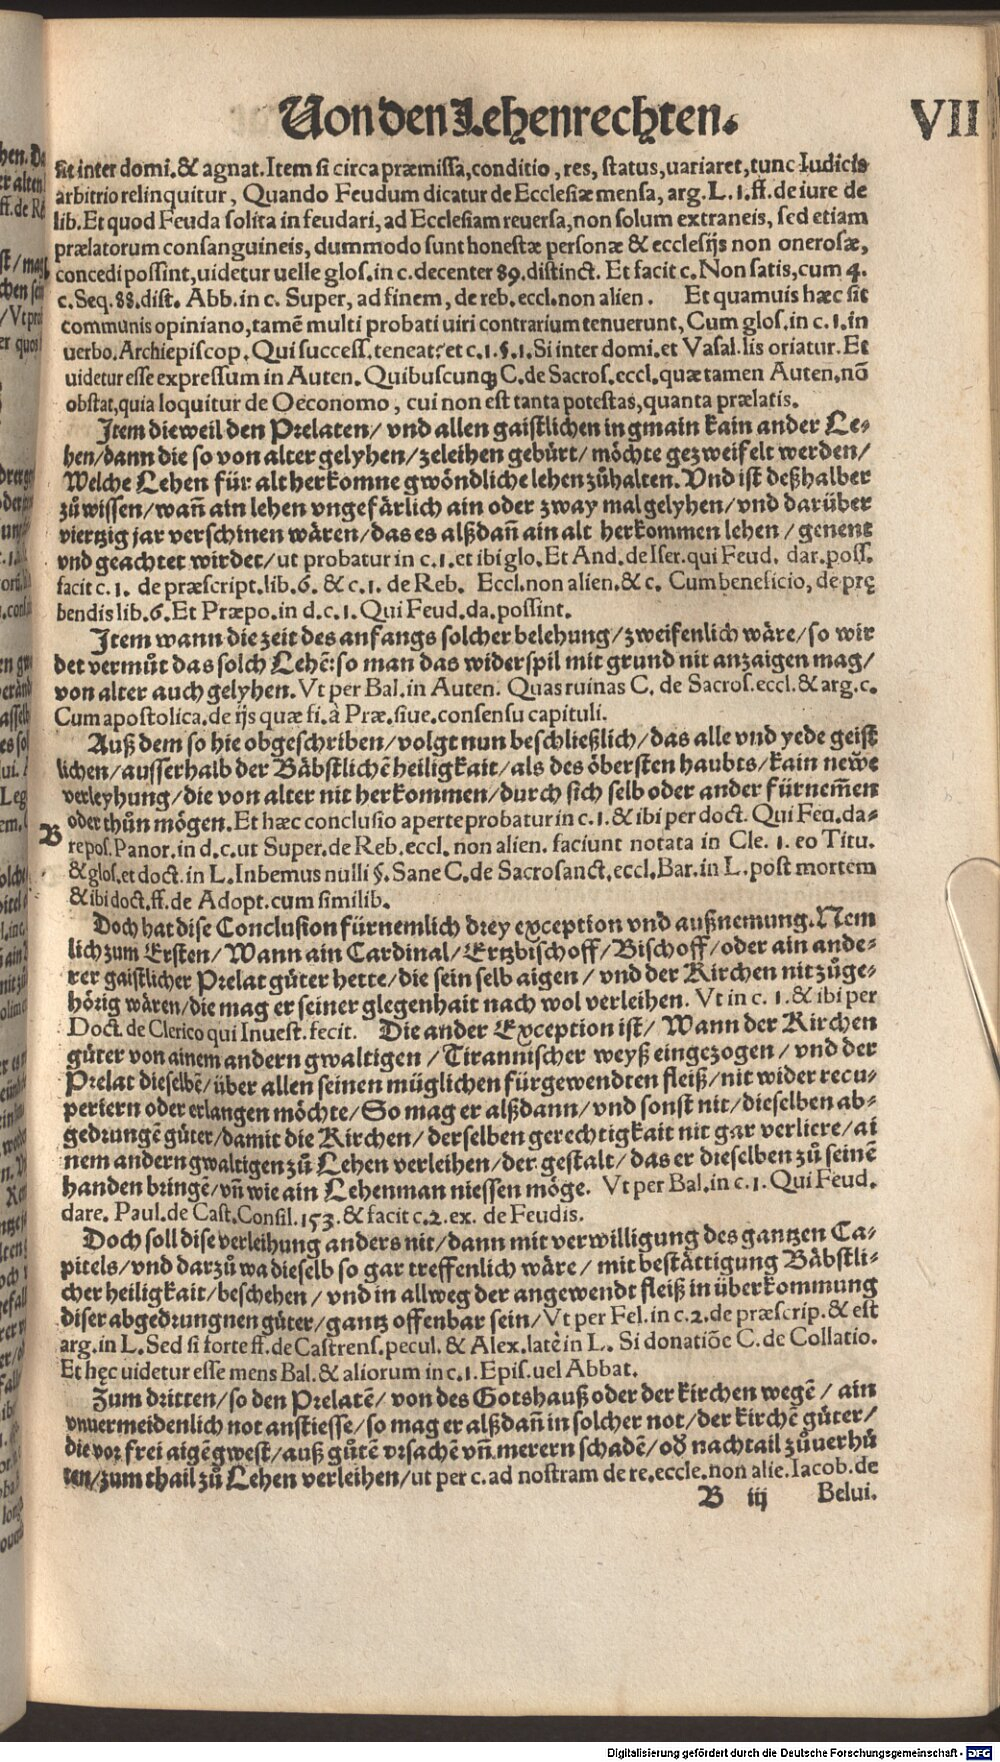 Von den Lehenrechten. VII
sit inter domi. & agnat. Item si circa præmissa, conditio, res, status, uariaret, tunc Iudicis
arbitrio relinquitur, Quando Feudum dicatur de Ecclesiæ mensa, arg. L. 1. ff. de iure de
lib. Et quod Feuda solita in feudari, ad Ecclesiam reuersa, non solum extraneis, sed etiam
prælatorum consanguineis, dummodo sunt honestæ personæ & ecclesijs non onerosæ,
concedi possint, uidetur uelle glos. in c. decenter 89. distinct. Et facit c. Non satis, cum 4.
c. Seq. 88. dist. Abb. in c. Super, ad finem, de reb. eccl. non alien. Et quamuis hæc sit
communis opiniano, tamē multi probati uiri contrarium tenuerunt, Cum glos. in c. 1. in
uerbo. Archiepiscop. Qui success. teneat. et c. 1. §. 1. Si inter domi. et Vasal. lis oriatur. Et
uidetur esse expressum in Auten. Quibuscunqꝫ C. de Sacros. eccl. quæ tamen Auten. nō
obstat, quia loquitur de Oeconomo, cui non est tanta potestas, quanta prælatis.
Item dieweil den Prelaten/ vnd allen gaistlichen in gmain kain ander Le-
hen/ dann die so von alter gelyhen/ zeleihen gebürt/ möchte gezweifelt werden/
Welche Lehen für alt herkomne gwöndliche lehen zůhalten. Vnd ist deßhalber
zů wissen/ wañ ain lehen vngefärlich ain oder zway mal gelyhen/ vnd darüber
viertzig jar verschinen wären/ das es alßdañ ain alt herkommen lehen/ genent
vnd geachtet wirdet/ ut probatur in c. 1. et ibi glo. Et And. de Iser. qui Feud. dar. poss.
facit c. 1. de præscript. lib. 6. & c. 1. de Reb. Eccl. non alien. & c. Cum beneficio, de prę
bendis lib. 6. Et Præpo. in d. c. 1. Qui Feud. da. possint.
Item wann die zeit des anfangs solcher belehung/ zweifenlich wäre/ so wir
det vermůt das solch Lehē: so man das widerspil mit grund nit anzaigen mag/
von alter auch gelyhen. Vt per Bal. in Auten. Quas ruinas C. de Sacros. eccl. & arg. c.
Cum apostolica. de ijs quæ fi. à Præ. siue. consensu capituli.
Auß dem so hie obgeschriben/ volgt nun beschließlich/ das alle vnd yede geist
lichen/ ausserhalb der Bäbstlichē heiligkait/ als des öbersten haubts/ kain newe
verleyhung/ die von alter nit herkommen/ durch sich selb oder ander fürnem̄en
B oder thůn mögen. Et hæc conclusio aperte probatur in c. 1. & ibi per doct. Qui Feu. da-
re pos. Panor. in d. c. ut Super. de Reb. eccl. non alien. faciunt notata in Cle. 1. eo Titu.
& glos. et doct. in L. Inbemus nulli §. Sane C. de Sacrosanct. eccl. Bar. in L. post mortem
& ibi doct. ff. de Adopt. cum similib.
Doch hat dise Conclusion fürnemlich drey exception vnd außnemung. Nem
lich zum Ersten/ Wann ain Cardinal/ Ertzbischoff/ Bischoff/ oder ain ande-
rer gaistlicher Prelat güter hette/ die sein selb aigen/ vnd der Kirchen nit zůge-
hörig wären/ die mag er seiner glegenhait nach wol verleihen. Vt in c. 1. & ibi per
Doct. de Clerico qui Inuest. fecit. Die ander Exception ist/ Wann der Kirchen
güter von ainem andern gwaltigen/ Tirannischer weyß eingezogen/ vnd der
Prelat dieselbē/ über allen seinen müglichen fürgewendten fleiß/ nit wider recu-
periern oder erlangen möchte/ So mag er alßdann/ vnd sonst nit/ dieselben ab-
gedrungē güter/ damit die Kirchen/ derselben gerechtigkait nit gar verliere/ ai
nem andern gwaltigen zů Lehen verleihen/ der gestalt/ das er dieselben zů seinē
handen bringē/ vñ wie ain Lehenman niessen möge. Vt per Bal. in c. 1. Qui Feud.
dare. Paul. de Cast. Consil. 153. & facit c. 2. ex. de Feudis.
Doch soll dise verleihung anders nit/ dann mit verwilligung des gantzen Ca-
pitels/ vnd darzů wa dieselb so gar treffenlich wäre/ mit bestättigung Bäbstli-
cher heiligkait/ beschehen/ vnd in allweg der angewendt fleiß in überkommung
diser abgedrungnen güter/ gantz offenbar sein/ Vt per Fel. in c. 2. de præscrip. & est
arg. in L. Sed si forte ff. de Castrens. pecul. & Alex. latè in L. Si donatiōe C. de Collatio.
Et hęc uidetur esse mens Bal. & aliorum in c. 1. Epis. uel Abbat.
Zum dritten/ so den Prelatē/ von des Gotshauß oder der kirchen wegē/ ain
vnuermeidenlich not anstiesse/ so mag er alßdañ in solcher not/ der kirchē güter/
die vor frei aigē gwest/ auß gůtē vrsachē vñ merern schadē/ oð nachtail zůuerhů
ten/ zum thail zů Lehen verleihen/ ut per c. ad nostram de re. eccle. non alie. Iacob. de
B iij Belui.
Digitalisierung gefördert durch die Deutsche Forschungsgemeinschaft - DFG